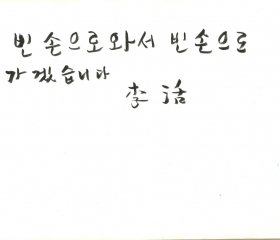 빈 손으로 와서 빈 손으로
가겠습니다
李活